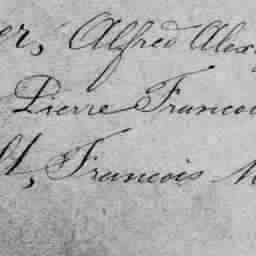 er, Alfred Alex
Pierre Francoi
lt, Francois M